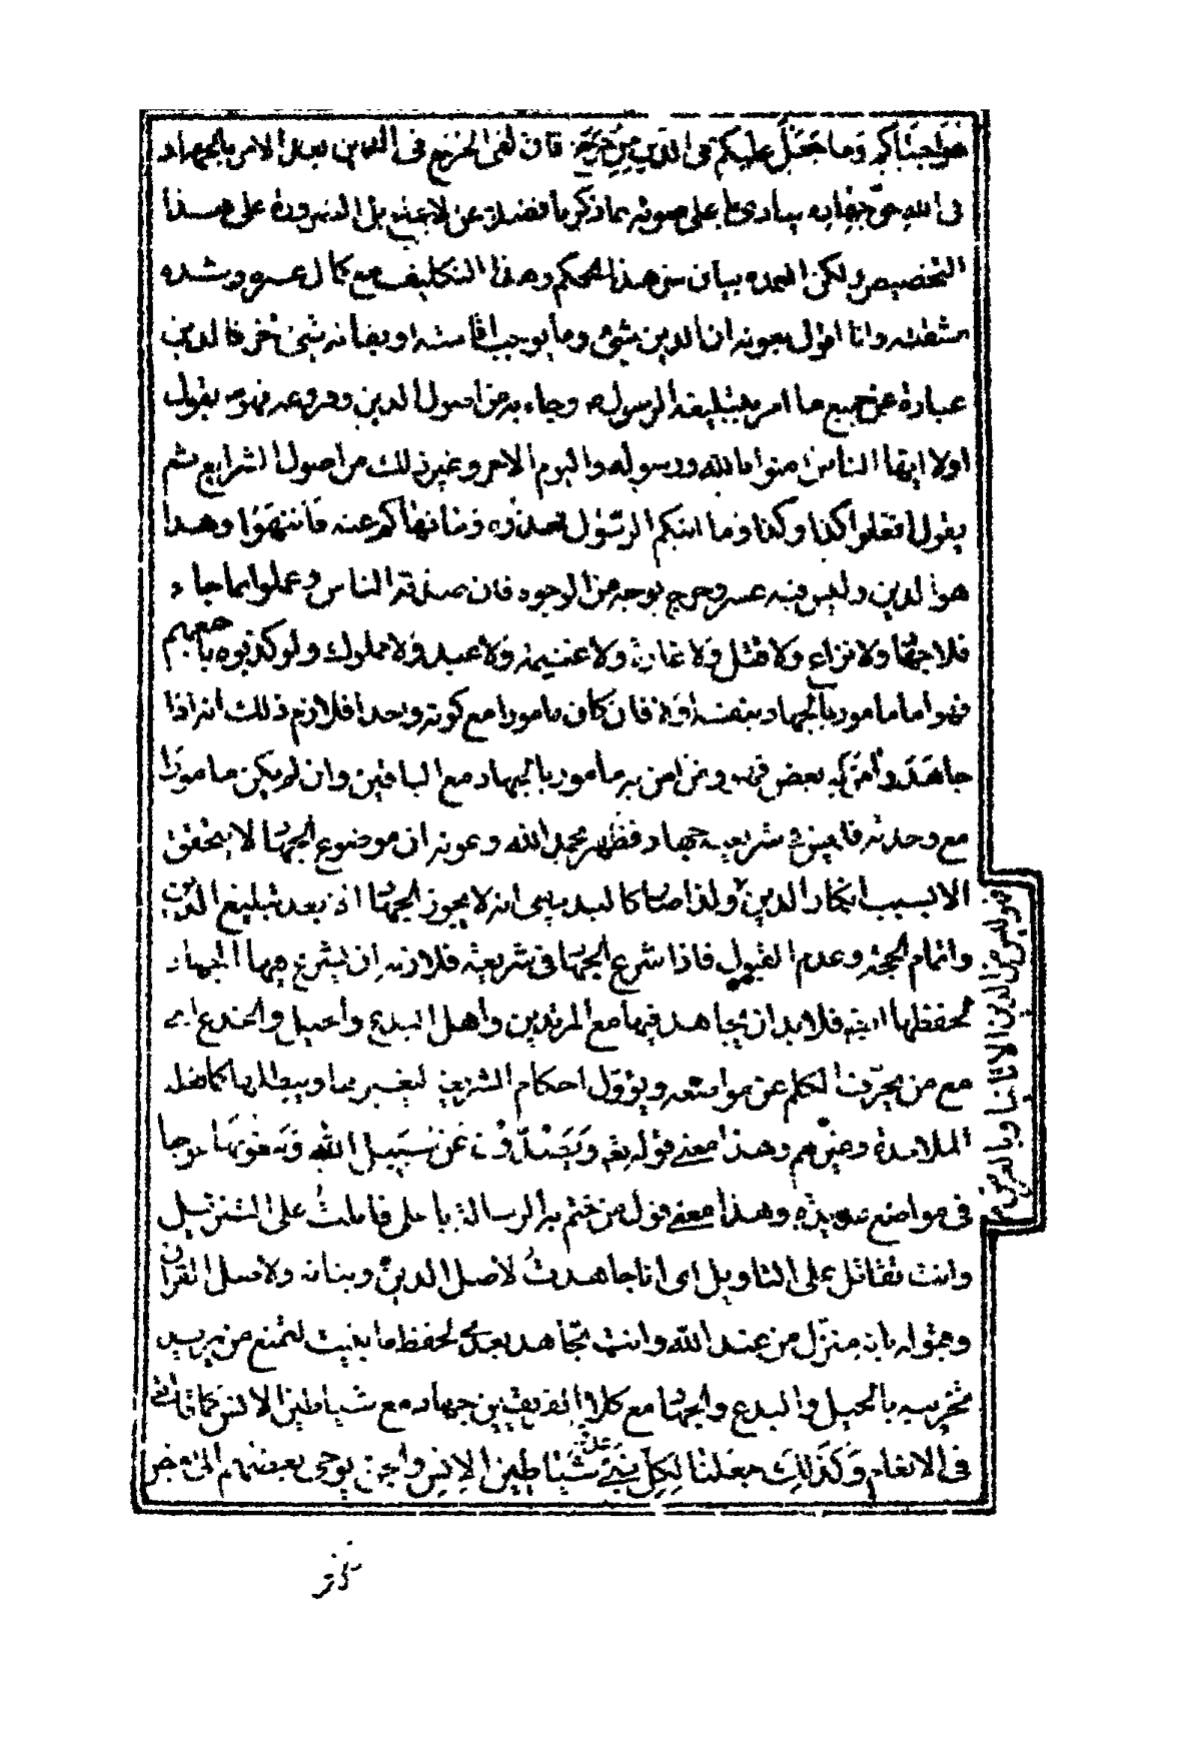 هُوَ اجْتَبٰاكُم وَمٰا جَعَلَ عليكم فى الدّينِ مِنْ حَرَجٍ فان نفى الحرج فى الدين بعد الامر بالجهاد
فى الله حقّ جهاده ينادى باعلى صوته بما ذكرنا فضلا عن بل الضرورة على هذا
التخصيص ولكن العمده بيان سرّ هذا الحكم وهذا التكليف مع كمال عسره وشده
مشقته وانا اقول بعونه ان الدين شئ وما يوجب اقامته او بقائه شئ اخر فالدين
عبارة عن جميع ما امر بتبليغه الرسول وجاء به من اصول الدين وفروعه فهو يقول
اولا ايها الناس امنوا بالله ورسوله واليوم الاخر وغير ذلك من اصول الشرايع ثم
يقول افعلوا كذا وكذا وَمٰا اتيكم الرّسُول فخذوه وَمٰا نهٰاكُم عنه فَانْتَهُوا وهذا
هو الدين وليس فيه عسر وحرج بوجه من الوجوه فان صدّقه الناس وعملوا بما جاء
فلا جهاد ولا نزاع ولا قتل ولا غارة ولا غنيمة ولا عبيد ولا مملوك ولو كذبوه باجمعهم
فهو اما مامور بالجهاد بنفسه اولا فان كان مامورا مع كونه وحدا فلازم ذلك انه اذا
جاهَدَ وامن به بعض فهو ومن امن به مامور بالجهاد مع الباقين وان لم يكن مامورا
مع وحدته فليس فى شريعته جهاد فظهر بحمد الله وعونه ان موضوع الجهاد لا يتحقق
الا بسبب انكار الدين ولذا صار كالبديهى انه لا يجوز الجهاد الا بعد تبليغ الدين
واتمام الحجة وعدم القبول فاذا شرع الجهاد فى شريعته فلازمه ان يشرع فيها الجهاد
لحفظها ايضا فلا بد ان يجاهد فيها مع المرتدين واهل البدع والحيل والخدع اى
مع من يحرّف الكلم عن مواضعه ويؤول احكام الشريعة ليغيرها ويبطلها كما فعله
الملاحدة وغيرهم وهذا معنى قوله تعالى وَيَصُدُّونَ عَنْ سَبيلِ اللهِ وَيَبْغُونَهٰا عوجا
فى مواضع عديدة وهذا معنى قول من ختم به الرسالة يا على قاتلتُ على التنزيل
وانت تقاتل على التاويل اى انا جاهدتُ لاصل الدين وبنائه ولاصل القران
وقبوله بانه منزّل من عند الله وانت تجاهد بعدى لحفظ ما بنيت لتمنع من يريد
تخريبه بالحيل والبدع والجهاد مع كلا الفريقين جهاد مع شياطين الانس كما قال تعالى
فى الانعام وَكَذٰلِكَ جَعَلْنٰا لِكُلِّ نَبِىٍّ عدوّا شَيٰاطينَ الاِنسِ والجنّ يُوحى بعضهم الى بعض
فهو ليس من الدين الا ثانيا وبالعرض